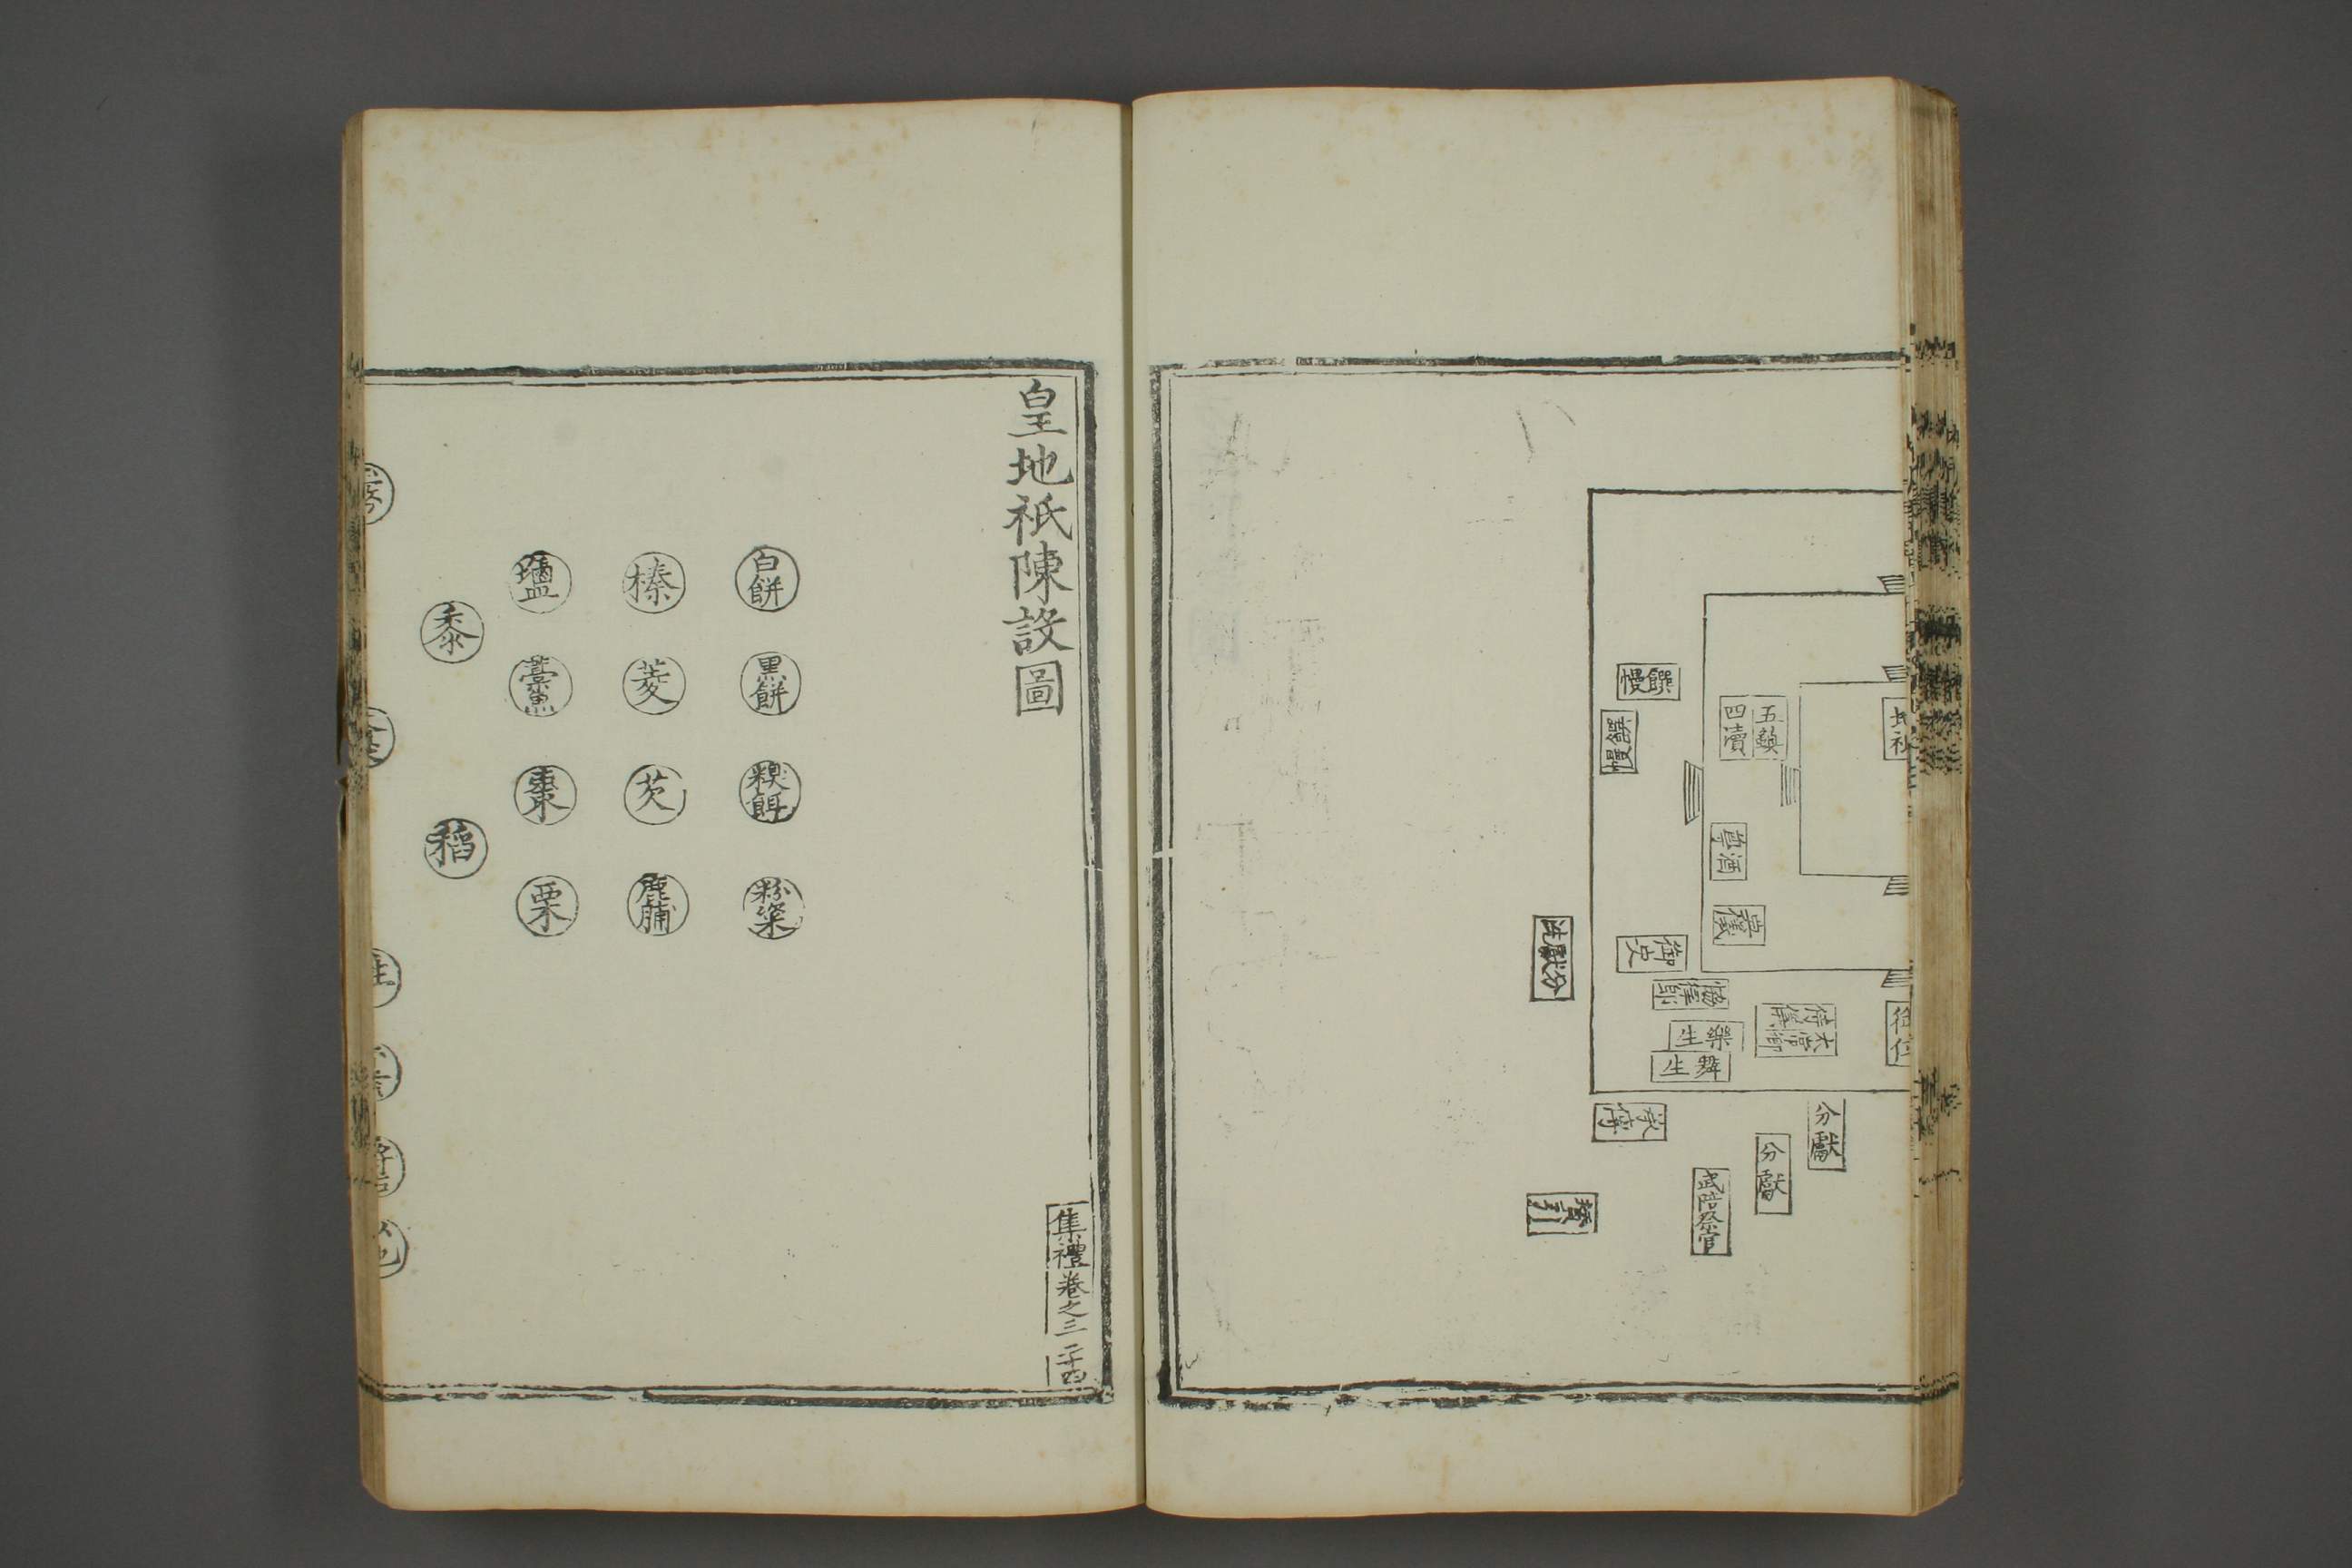 五鎮
四瀆
饌幔
饌幔
尊酒
御史
協律郎
樂生
舞生
太常卿
御位
分獻
分獻
武陪祭官
分獻
皇地祇陳設圖
白餅
黑餅
糗餌
粉粢
榛
菱
芡
鹿脯
鹽
藁魚
棗
栗
黍
稻
集禮卷之三
二十四